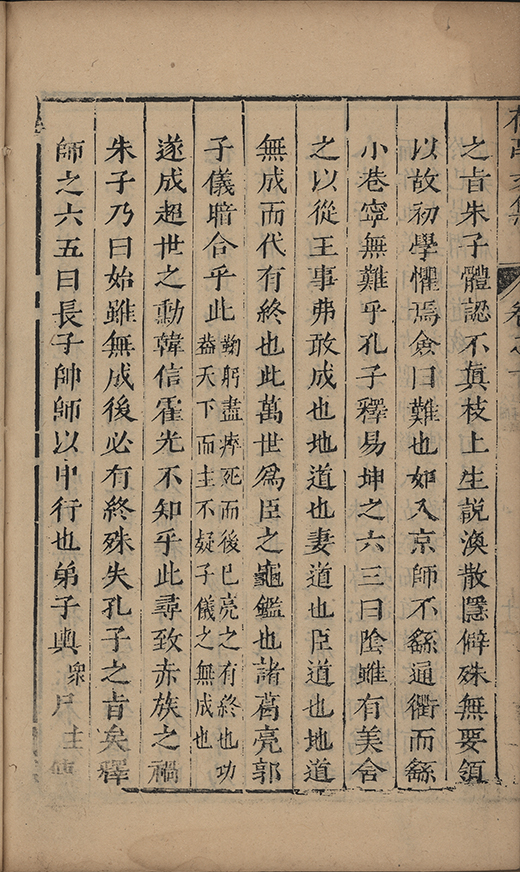 之旨朱子體認不眞枝上生説渙散隱僻殊無要領
以故初學懼焉僉曰難也如入京師不繇通衢而繇
小巷寧無難乎孔子釋易坤之六三曰陰雖有美含
之以從王事弗敢成也地道也妻道也臣道也地道
無成而代有終也此萬世爲臣之龜鑑也諸葛亮郭
子儀暗合乎此鞠躬盡瘁死而後已亮之有終也功
葢天下而主不疑子儀之無成也
遂成超世之勳韓信霍光不知乎此尋致赤族之禍
朱子乃曰始雖無成後必有終殊失孔子之旨矣釋
師之六五曰長子帥師以中行也弟子輿衆尸主使